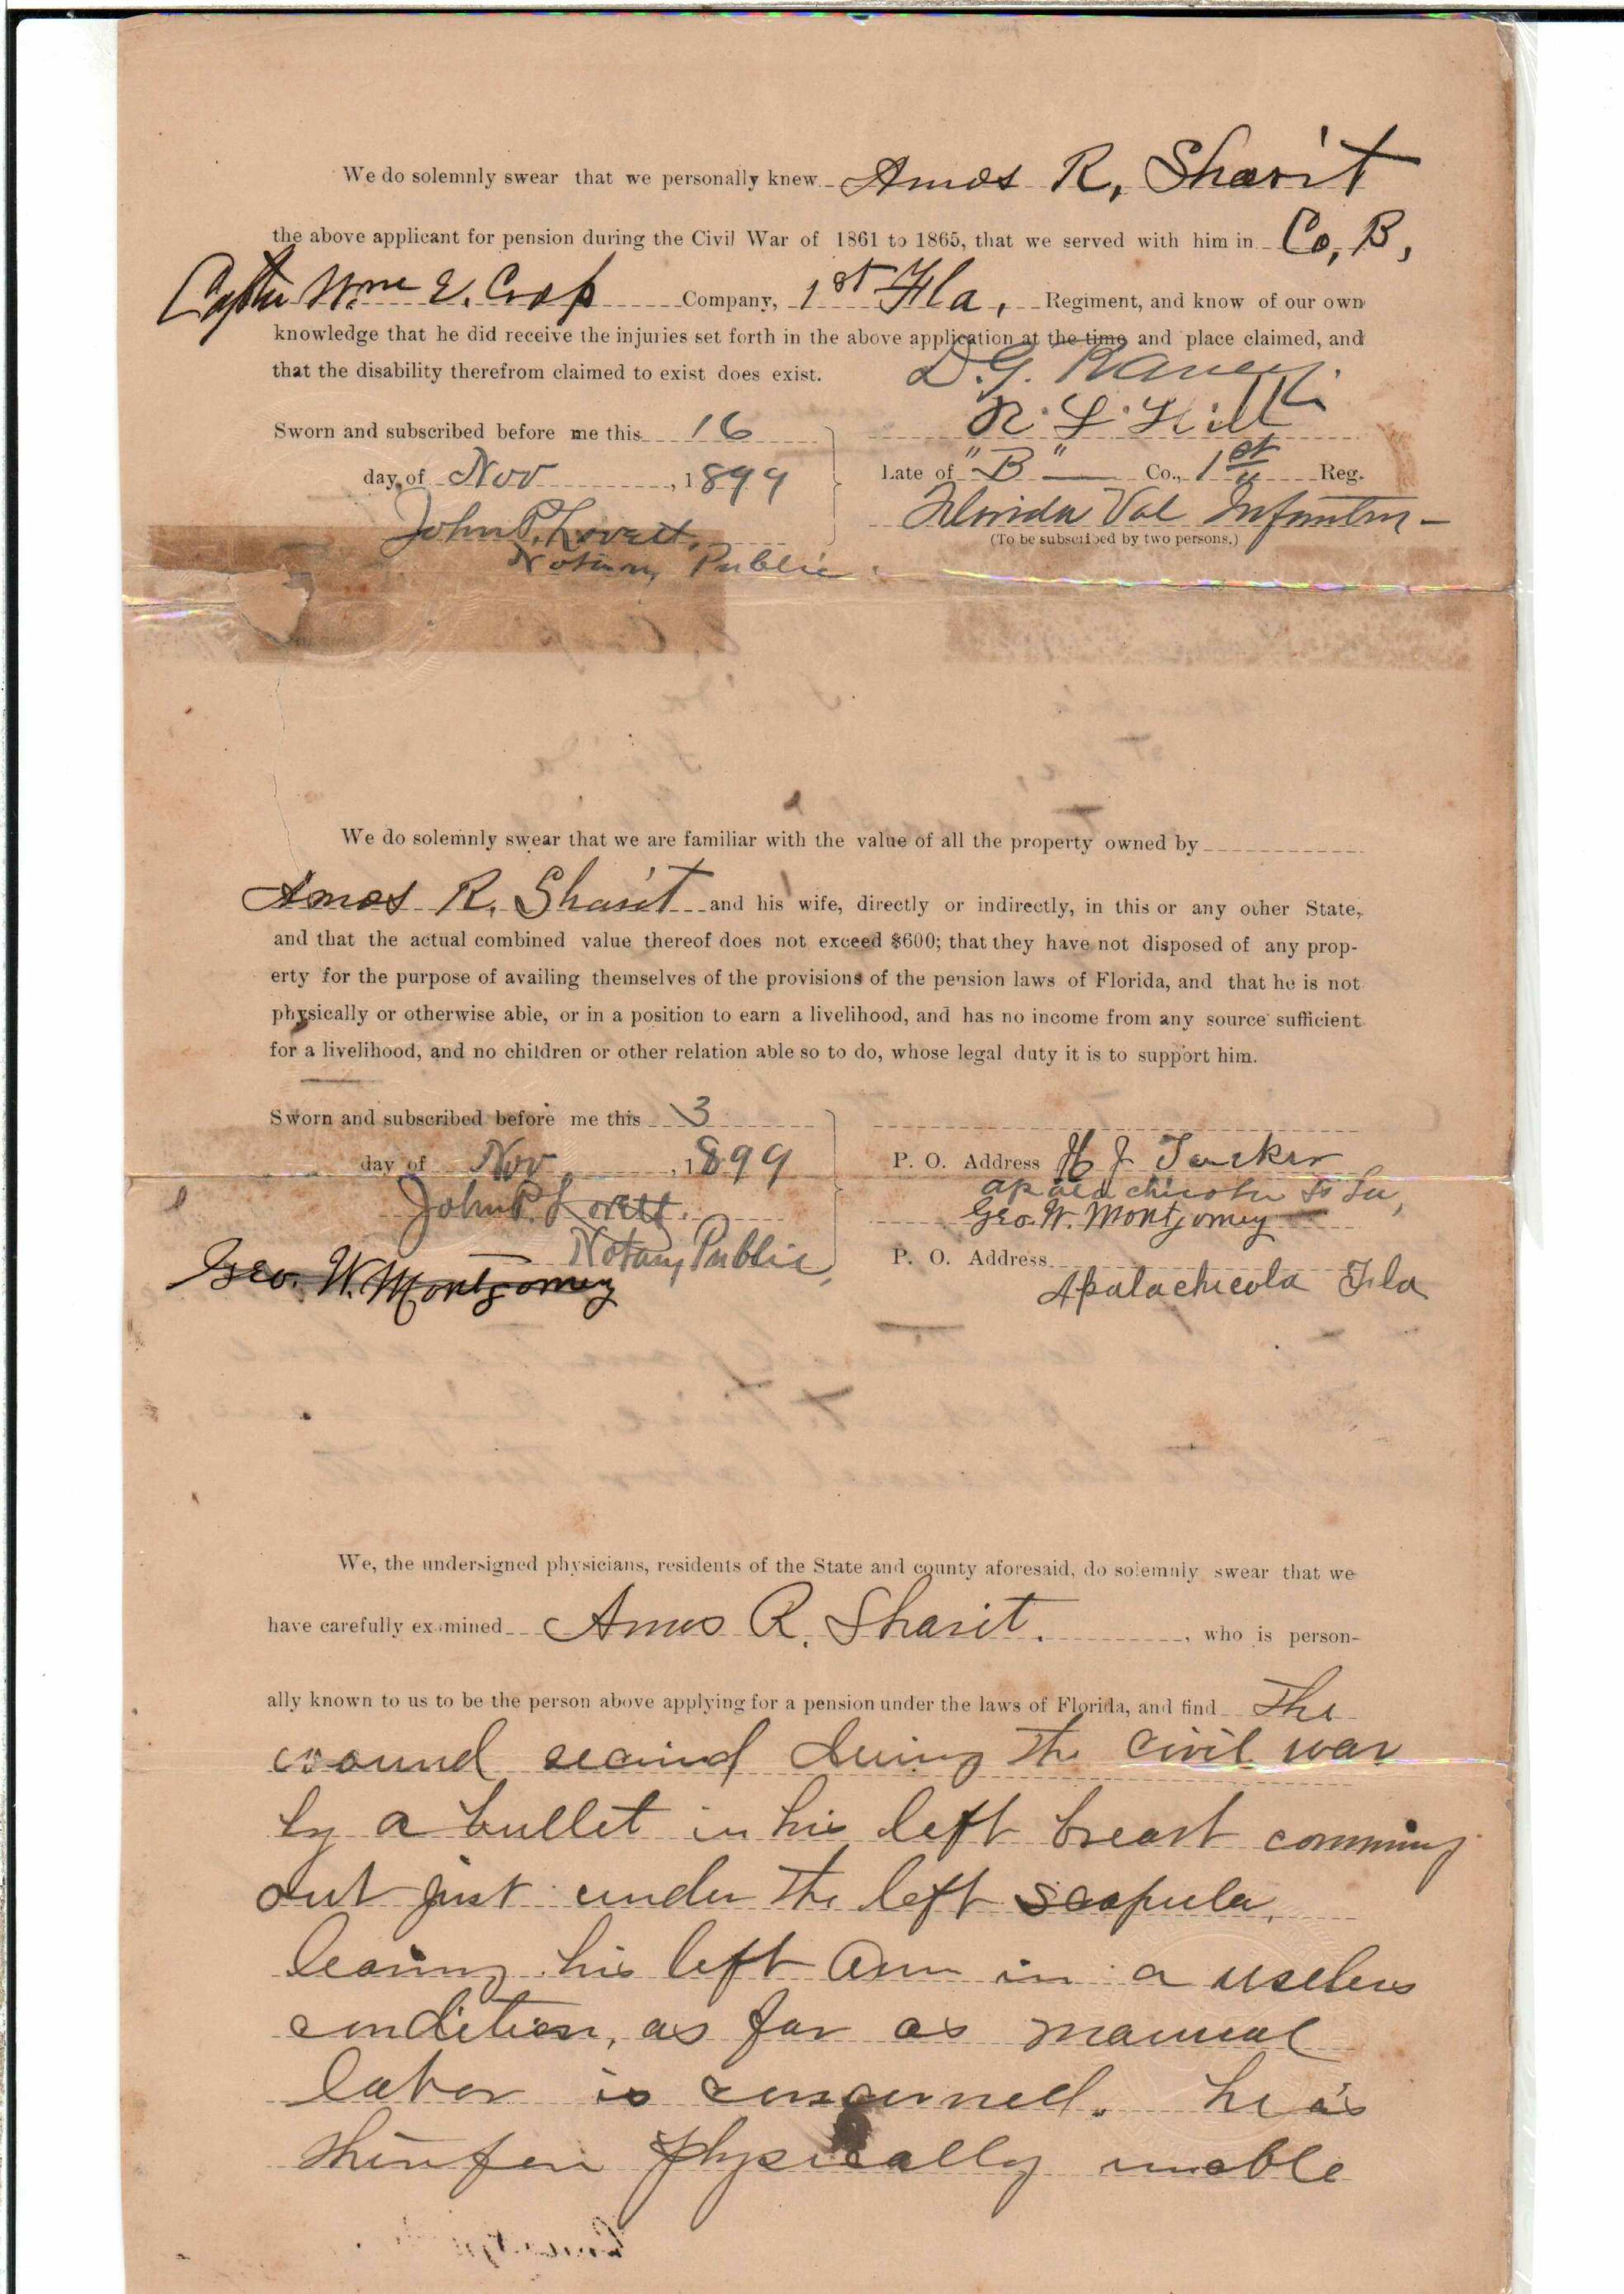 We do solemnly swear that we personally knew Amos R. Sharit
the above applicant for pension during the Civil War of 1861 to 1865, that we served with him in Co. B,
Captn Wm E. Crop Company, 1st Fla. Regiment, and know of our own
knowledge that he did receive the injuries set forth in the above application at the time and place claimed, and
that the disability therefrom claimed to exist does exist.
D. G. Raney
Sworn and subscribed before me this 16
R. L. Hill
day of Nov, 1899
Late of "B" Co., 1st Reg.
John P. Lovett.
Florida Vol Infantry
(To be subscribed by two persons.)
Notary Public.
We do solemnly swear that we are familiar with the value of all the property owned by
Amos R. Sharit and his wife, directly or indirectly, in this or any other State,
and that the actual combined value thereof does not exceed $600; that they have not disposed of any prop-
erty for the purpose of availing themselves of the provisions of the pension laws of Florida, and that he is not
physically or otherwise able, or in a position to earn a livelihood, and has no income from any source sufficient
for a livelihood, and no children or other relation able so to do, whose legal duty it is to support him.
Sworn and subscribed before me this 3
day of Nov, 1899
P. O. Address H J Tucker
John P. Lovett.
Apalachicola Fla,
Geo. W. Montgomey
Notary Public,
P. O. Address
Geo. W. Montgomey
Apalachicola Fla
We, the undersigned physicians, residents of the State and county aforesaid, do solemnly swear that we
have carefully examined Amos R. Sharit., who is person-
ally known to us to be the person above applying for a pension under the laws of Florida, and find The
wound during the civil war
by a bullet in his left breast comming
out just under the left scapula,
leaving his left arm in a useless
condition, as far as manual
labor is concerned. he is
physically unable